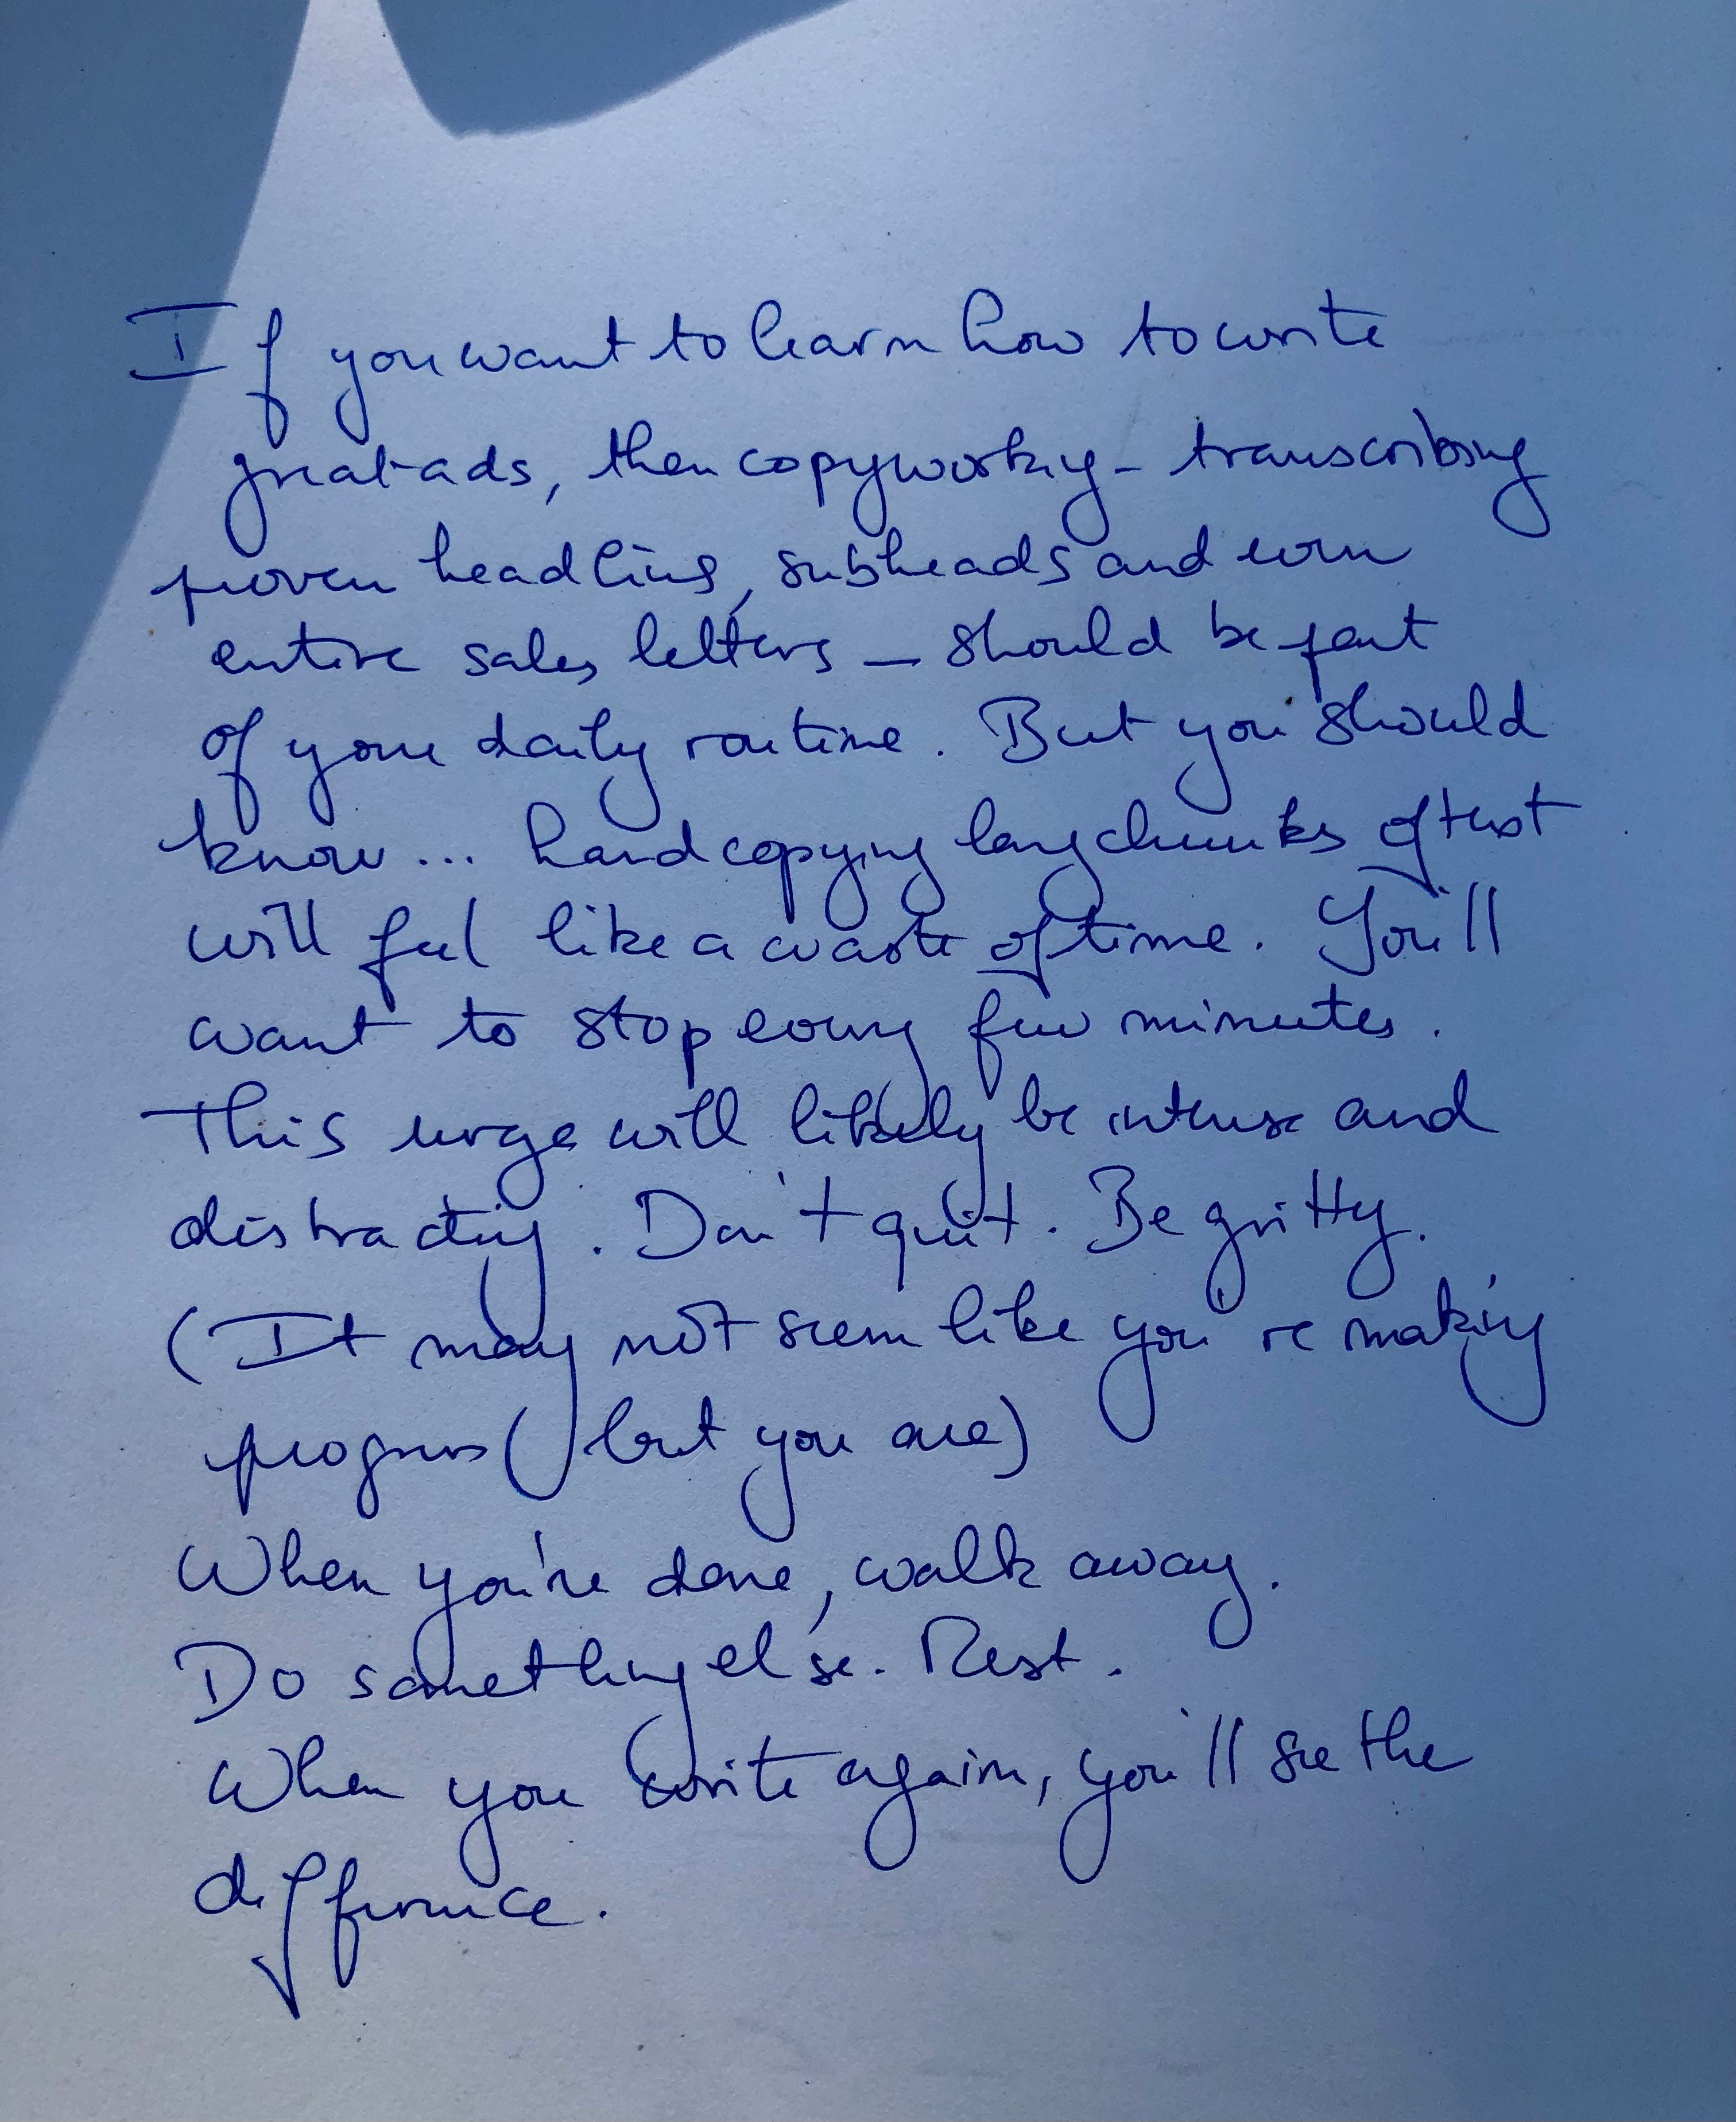 If you want to learn how to write
great ads, then copyworking - transcribing
proven headlines, subheads and even
entire sales letters - should be part
of your daily routine. But you should
know... hand copying long chunks of text
will feel like a waste of time. You'll
want to stop every few minutes.
This urge will likely be intense and
distracting. Don't quit. Be gritty.
(It may not seem like you're making
progress (but you are)
When you're done, walk away.
Do something else. Rest.
When you write again, you'll see the
difference.